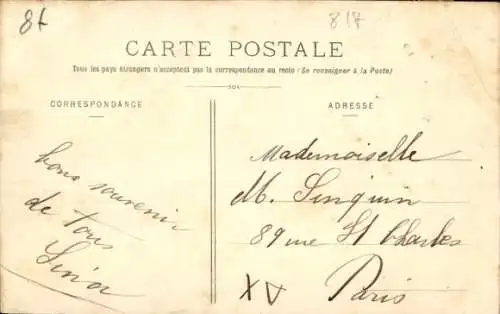 8f
817
CARTE POSTALE
Tous les pays étrangers n'acceptent pas la correspondance au recto (Se renseigner à la Poste)
CORRESPONDANCE
ADRESSE
bons souvenir
de tous
Mademoiselle
M. Sinquin
89 rue St Charles
Paris
XV